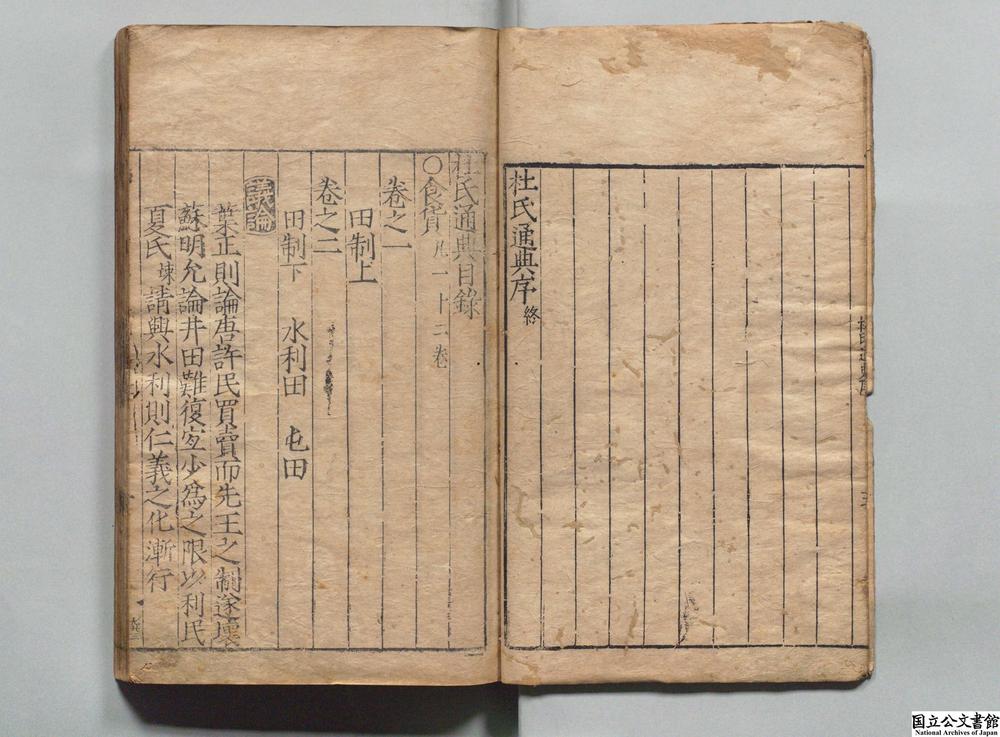 杜氏通典序 終
杜氏通典目錄
〇食貨 凡一十二卷
卷之一
田制上
卷之二
田制下 水利田 屯田
議論
葉正則論唐許民買賣而先王之制遂壞
蘇明允論井田難復宜少爲之限以利民
夏氏竦請興水利則仁義之化漸行
国立公文書館
National Archives of Japan